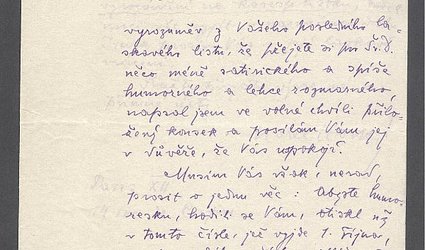 vyrozuměv z Vašeho posledního la-
skavého listu, že přejete si pro
něco méně satirického a spíše
humorného a lehce rozmarného,
napsal jsem ve volné chvíli přilo-
žený kousek a posílám Vám jej
v důvěře, že Vás uspokojí.
Musím Vás však, nerad,
prosit o jednu věc: Abyste humo-
resku, hodí-li se Vám, otiskl už
v tomto čísle, jež vyjde 1. října,